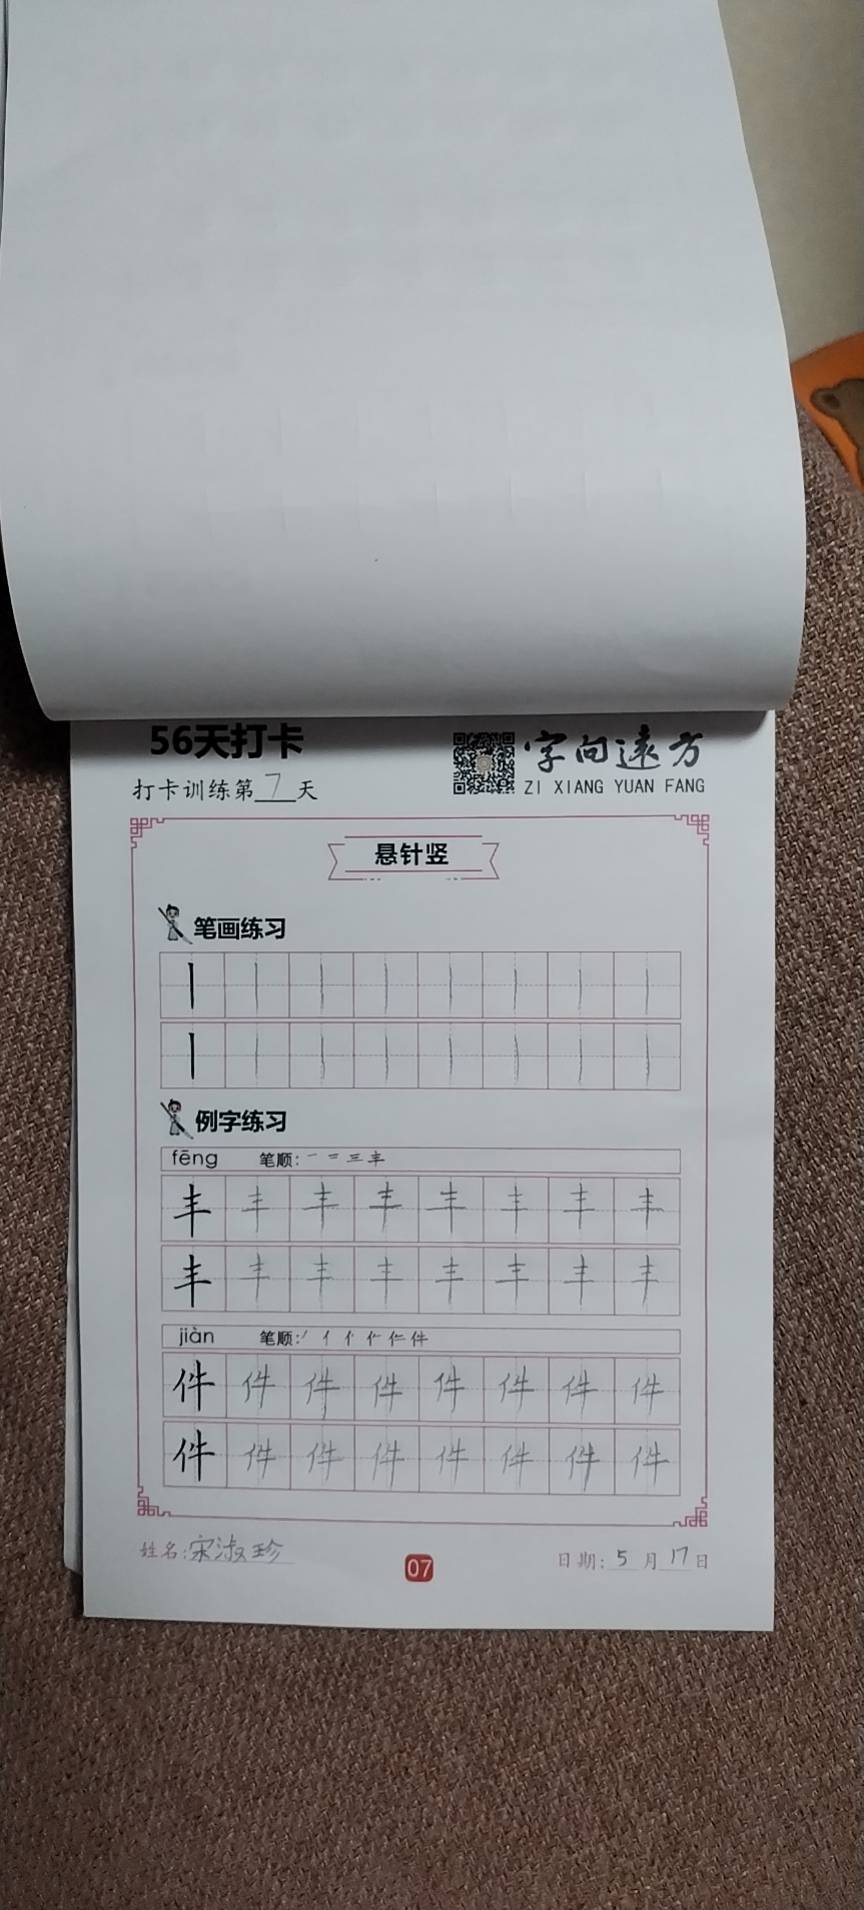 56天打卡
字向遠方
打卡训练第7天
ZI XIANG YUAN FANG
悬针竖
笔画练习
丨 丨 丨 丨 丨 丨 丨 丨
丨 丨 丨 丨 丨 丨 丨 丨
例字练习
fēng 笔顺: 一 二 三 丰
丰 丰 丰 丰 丰 丰 丰 丰
丰 丰 丰 丰 丰 丰 丰 丰
jiàn 笔顺: 丿 亻 件
件 件 件 件 件 件 件 件
件 件 件 件 件 件 件 件
姓名:宋淑珍
07
日期:5月17日